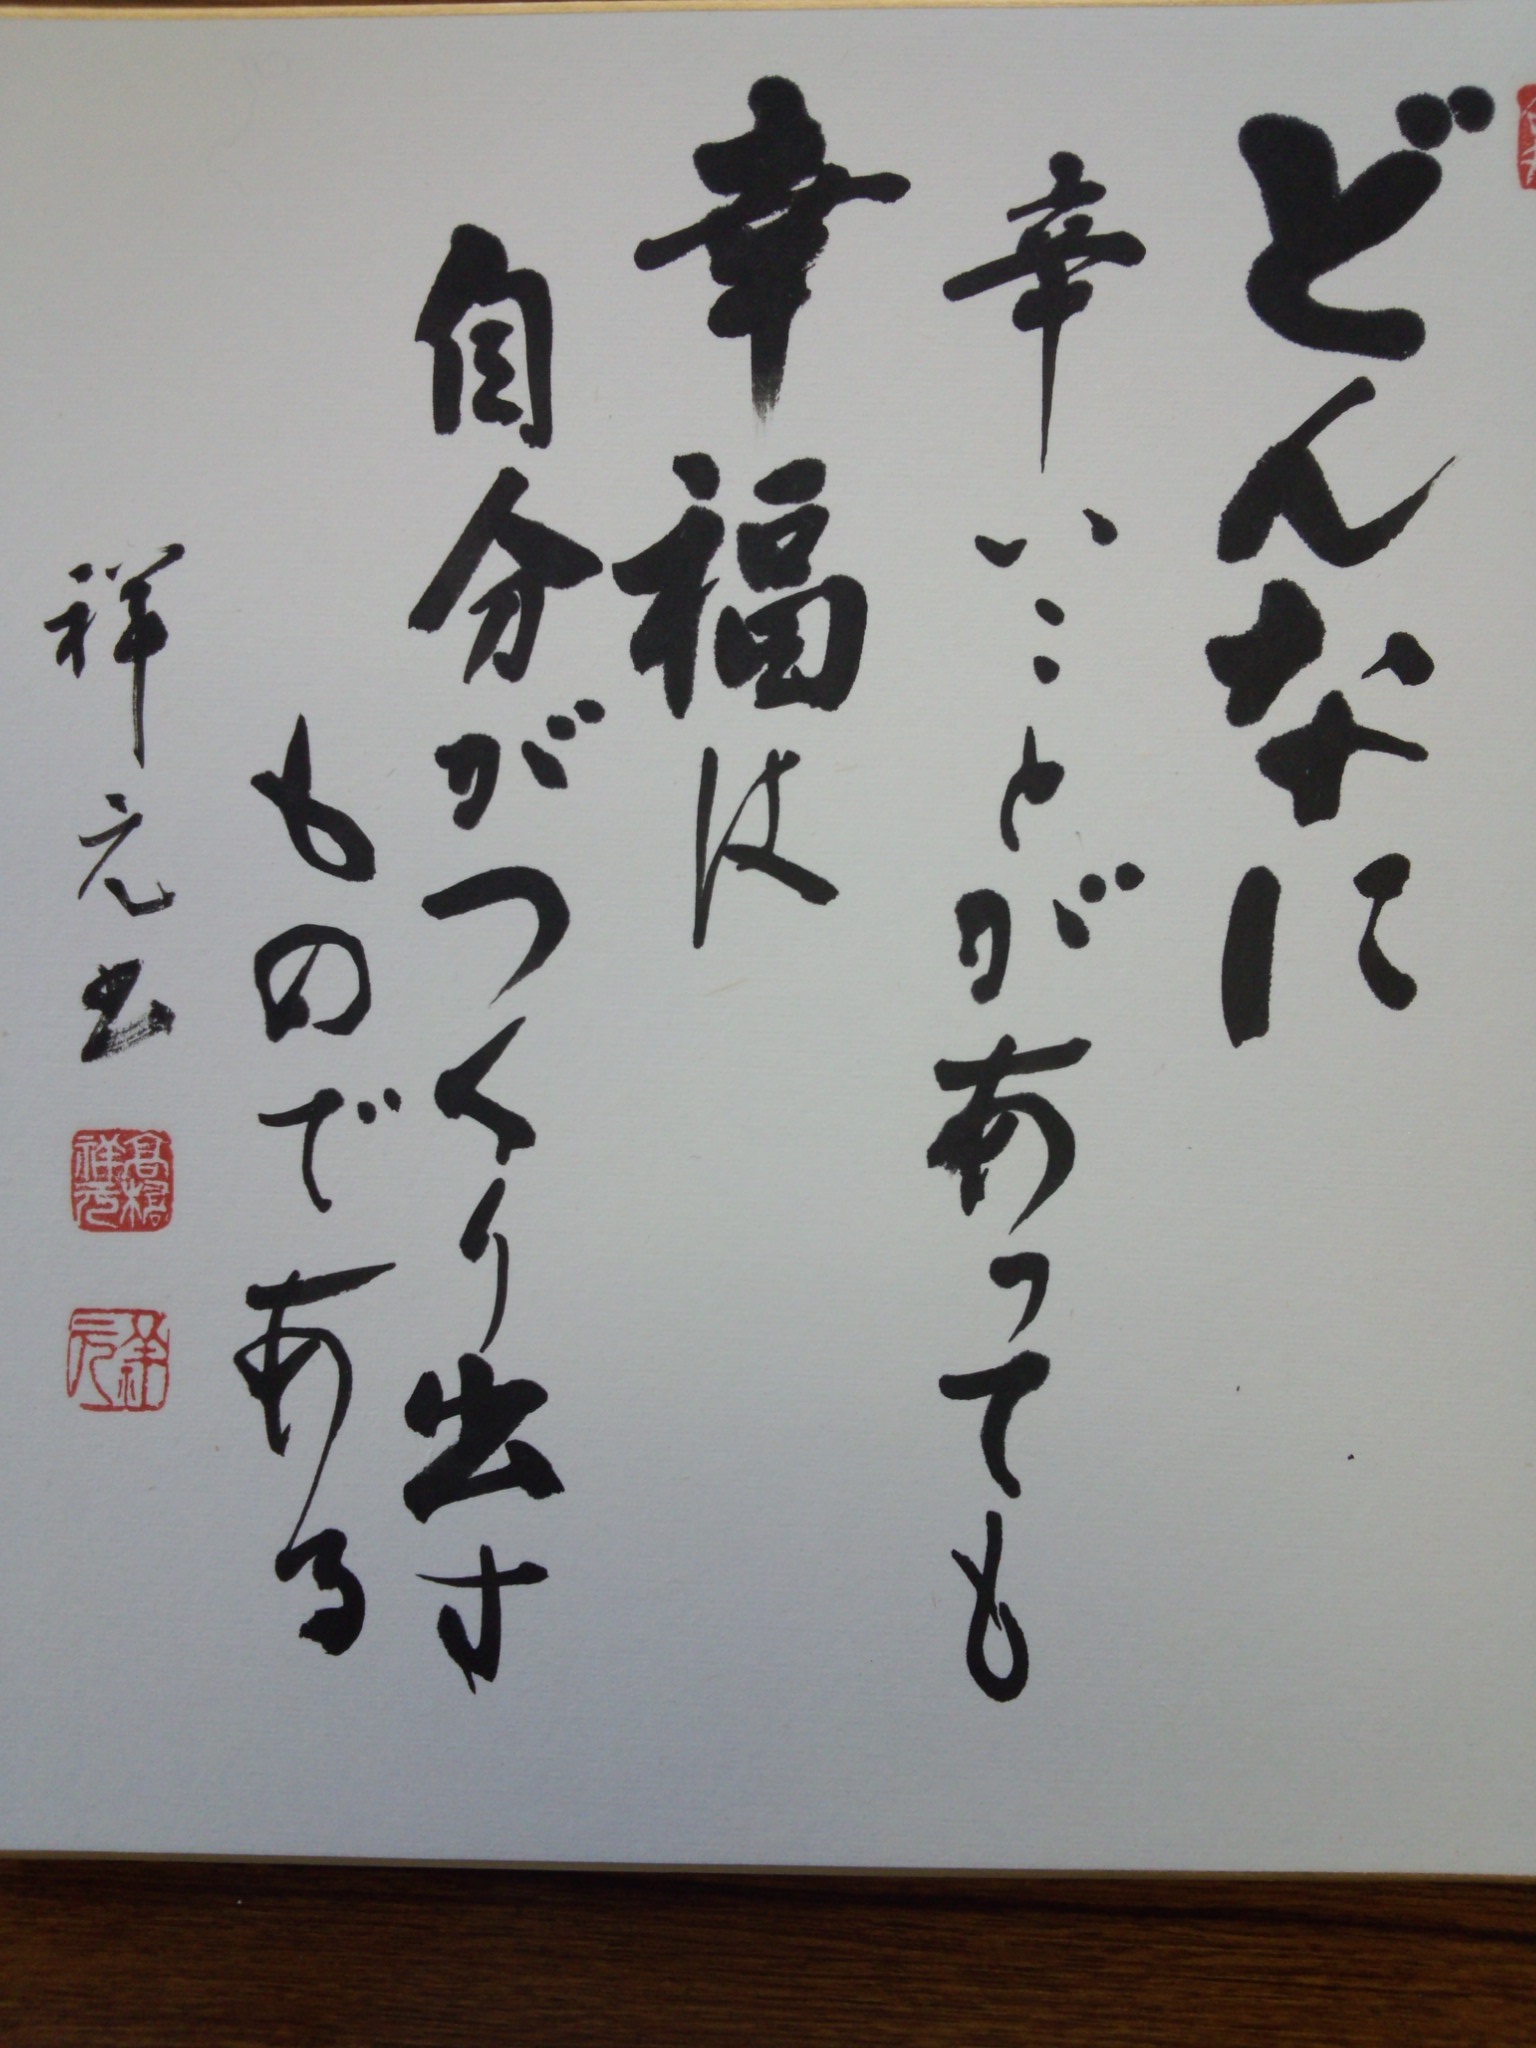 どんなに
辛いことがあっても
幸福は
自分がつくり出す
ものである
祥元書